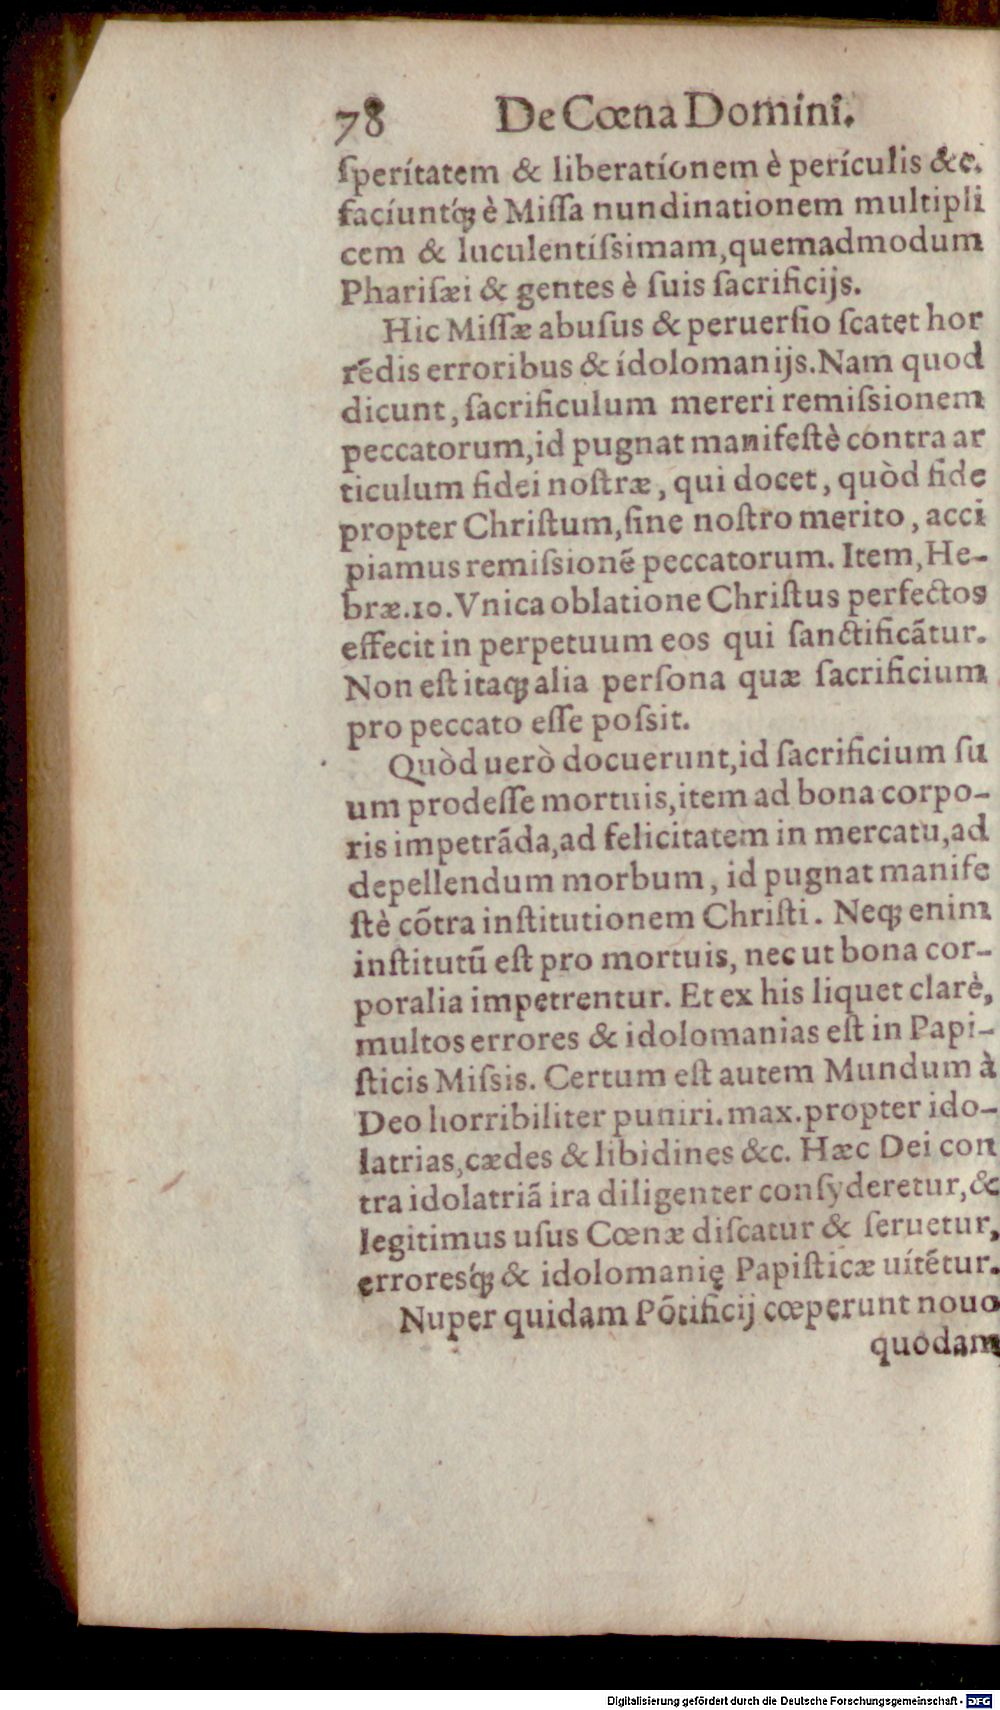 78 De Cœna Domini.
ſperitatem & liberationem è periculis &c.
faciuntq́ꝫ è Miſſa nundinationem multipli
cem & luculentiſsimam, quemadmodum
Phariſæi & gentes è ſuis ſacrificijs.
Hic Miſſæ abuſus & peruerſio ſcatet hor
rẽdis erroribus & idolomanijs. Nam quod
dicunt, ſacrificulum mereri remiſsionem
peccatorum, id pugnat manifeſtè contra ar
ticulum fidei noſtræ, qui docet, quòd fide
propter Chriſtum, ſine noſtro merito, acci
piamus remiſsionẽ peccatorum. Item, He-
bræ.10. Vnica oblatione Chriſtus perfectos
effecit in perpetuum eos qui ſanctificãtur.
Non eſt itaqꝫ alia perſona quæ ſacrificium
pro peccato eſſe poſsit.
Quòd uerò docuerunt, id ſacrificium ſu
um prodeſſe mortuis, item ad bona corpo-
ris impetrãda, ad felicitatem in mercatu, ad
depellendum morbum, id pugnat manife
ſtè cõtra inſtitutionem Chriſti. Neqꝫ enim
inſtitutũ eſt pro mortuis, nec ut bona cor-
poralia impetrentur. Et ex his liquet clarè,
multos errores & idolomanias eſt in Papi-
ſticis Miſsis. Certum eſt autem Mundum à
Deo horribiliter puniri. max. propter ido-
latrias, cædes & libidines &c. Hæc Dei con
tra idolatriã ira diligenter conſyderetur, &
legitimus uſus Cœnæ diſcatur & ſeruetur,
erroresq́ꝫ & idolomanię Papiſticæ uitẽtur.
Nuper quidam Põtificij cœperunt nouo
quodam
Digitalisierung gefördert durch die Deutsche Forschungsgemeinschaft - DFG